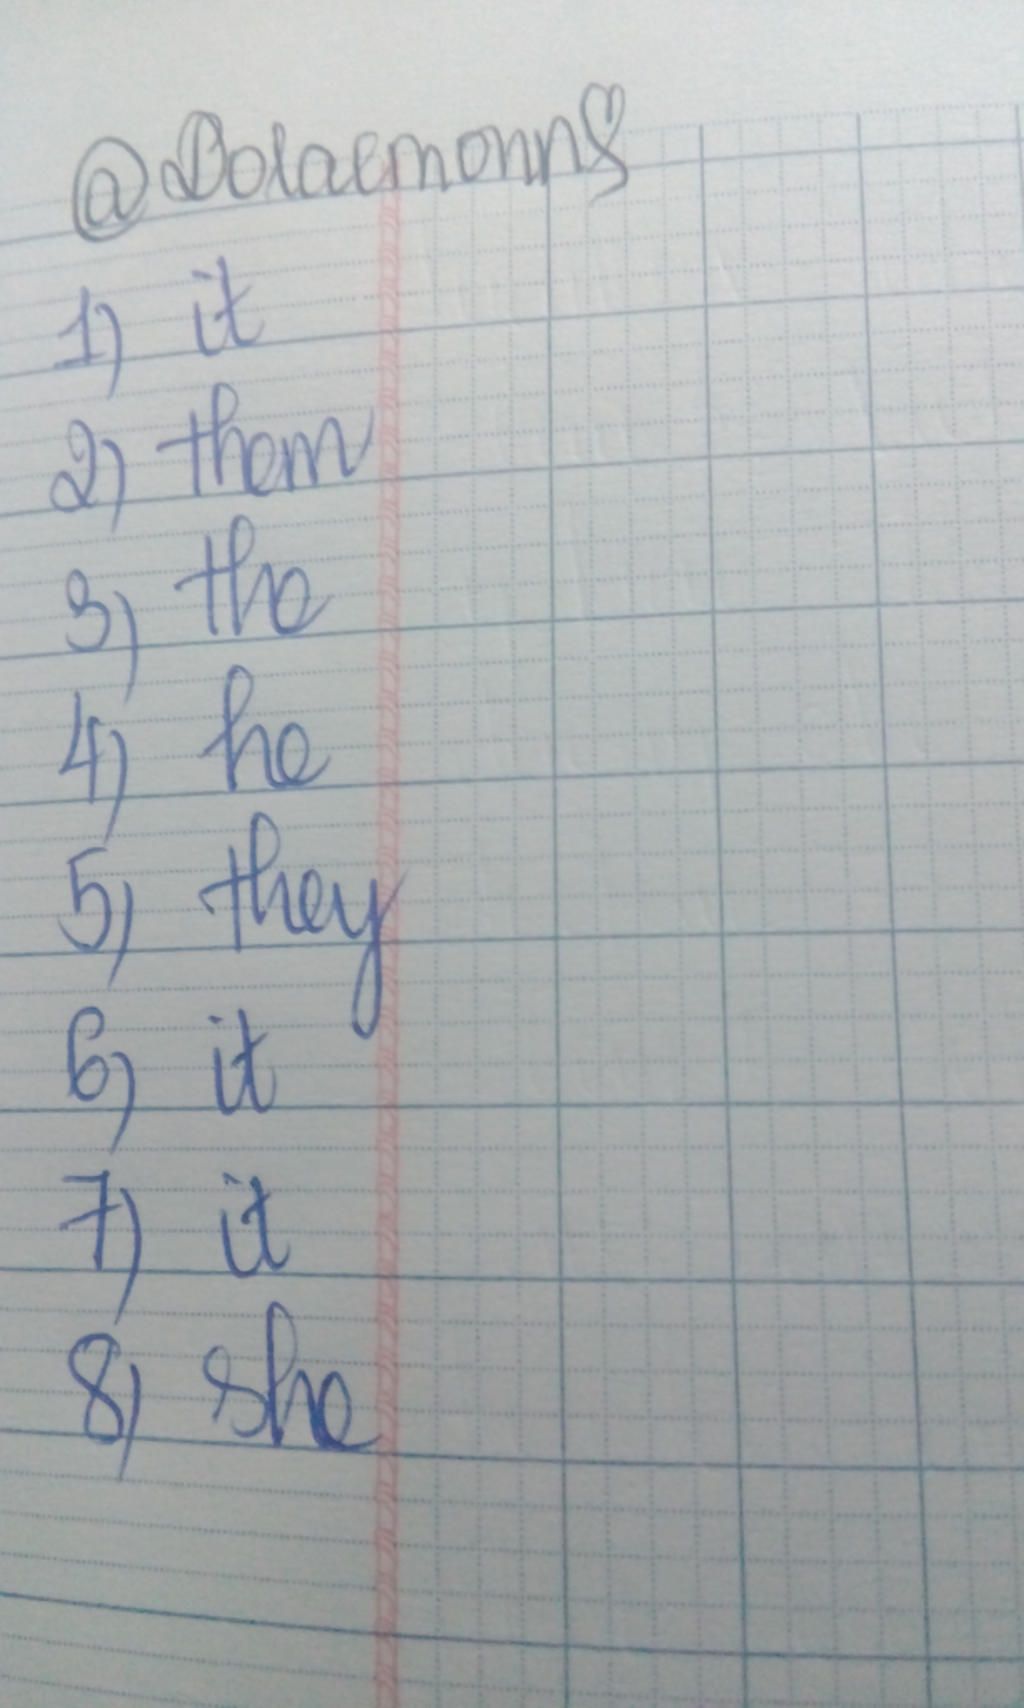 @Dolaemonn8
1) it
2) them
3) the
4) he
5) they
6) it
7) it
8) she